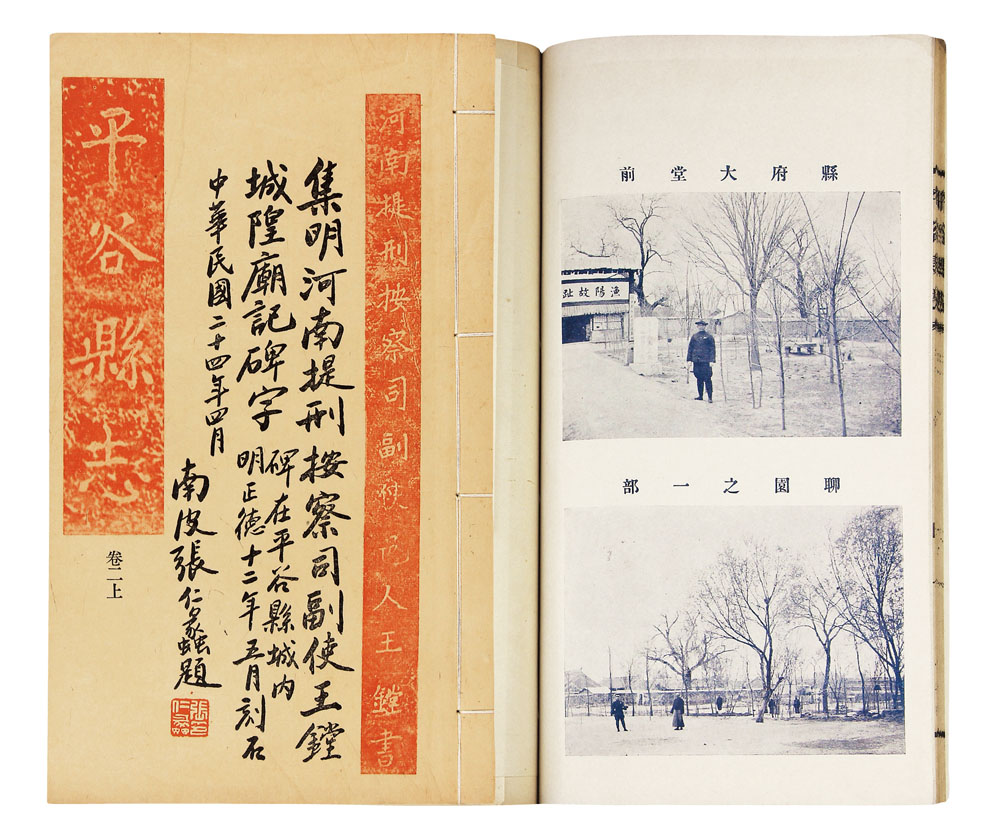 平谷縣志
卷二上
河南提刑按察司副使邑人王鏜書
集明河南提刑按察司副使王鏜
城隍廟記碑字
碑在平谷縣城內
明正德十二年五月刻石
中華民國二十四年四月
南皮張仁蠡題
張印仁蠡
縣府大堂前
漁陽故趾
聊園之一部